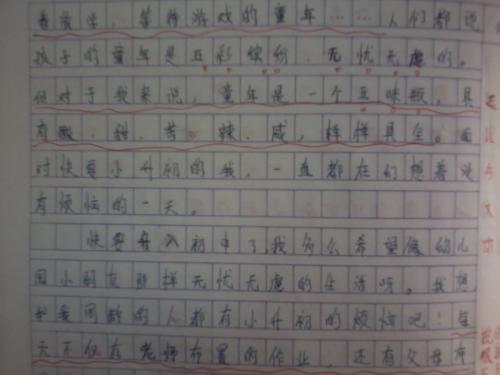 着放学,等待游戏的童年……人们都说
孩子的童年是五彩缤纷、无忧无虑的。
但对于我来说,童年是一个五味瓶,里
有酸、甜、苦、辣、咸,样样具全。面
对快要小升初的我,一直都在幻想着没
有烦恼的一天。
快要升入初中了,我多么希望像幼儿
园小朋友那样无忧无虑的生活呀。我想
和我同龄的人都有小升初的烦恼吧!每
天不仅有老师布置的作业,还有父母布